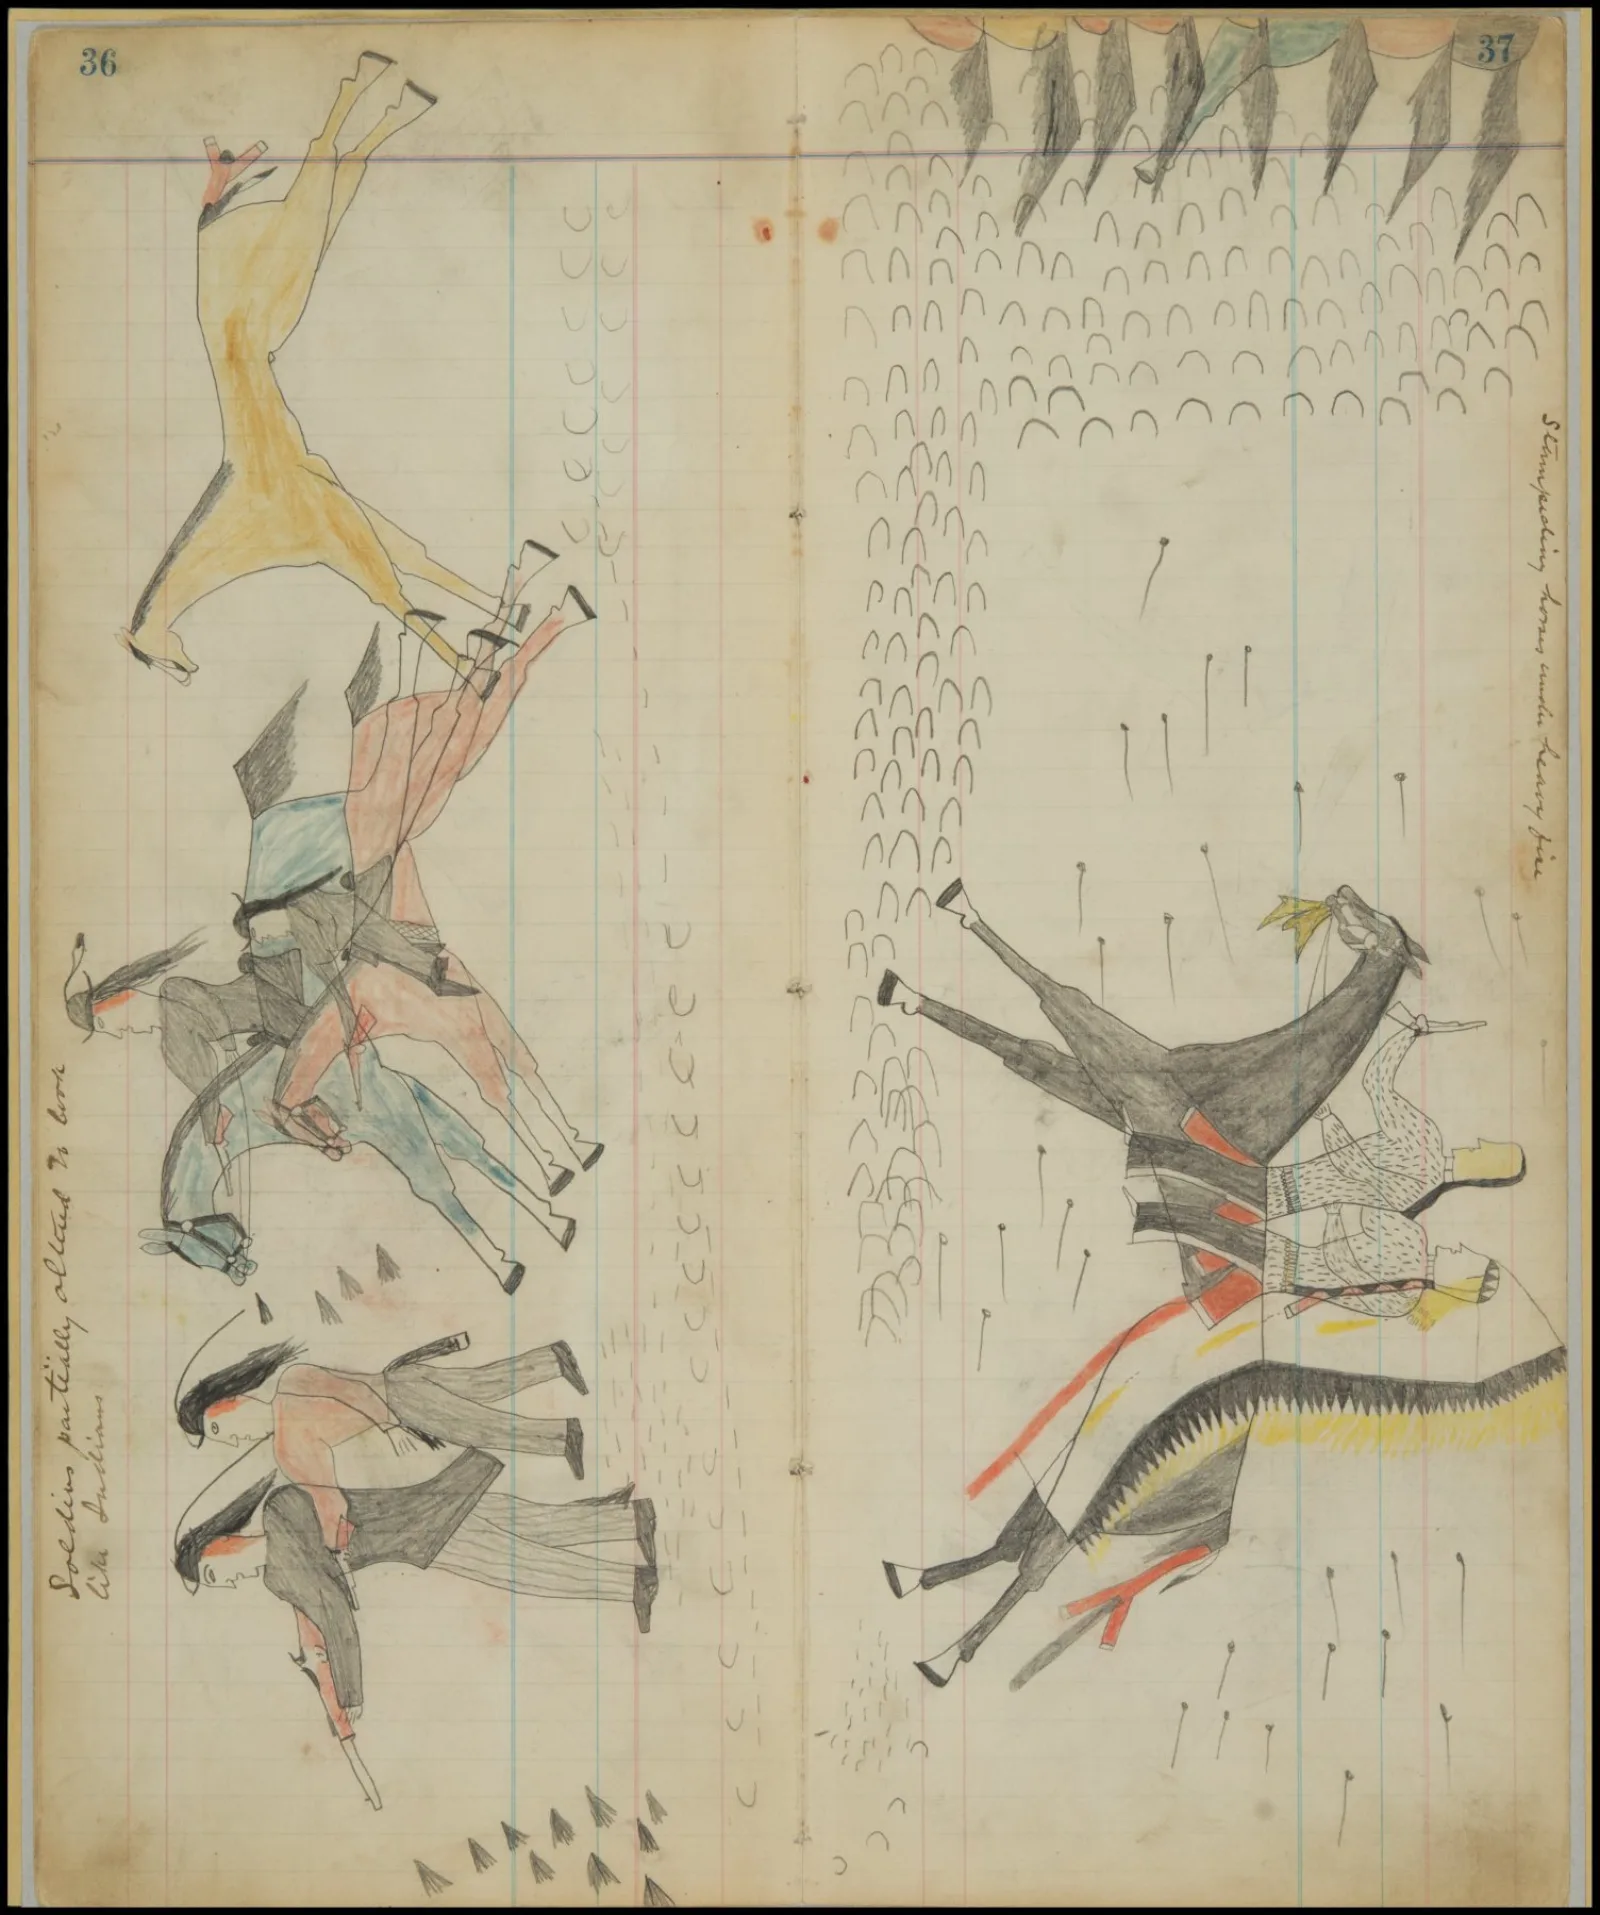 36
Soldiers partially altered to look
like Indians
37
Stampeding horses under heavy fire